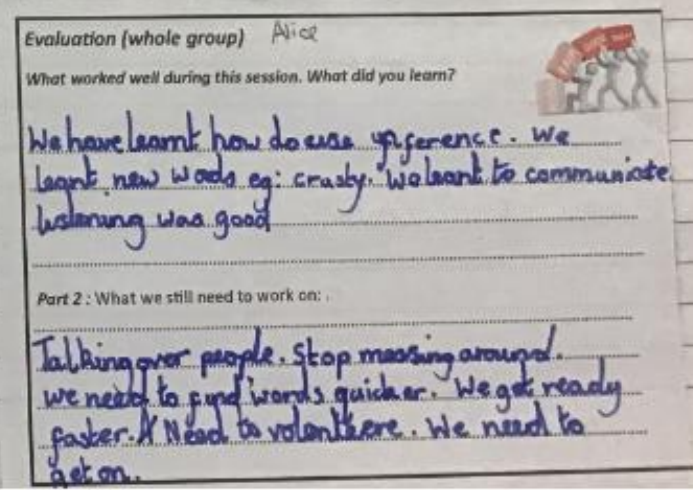 Evaluation (whole group) Alice
What worked well during this session. What did you learn?
We have learnt how do use inference. We
leant new wads eg: crusty. We leant to communicate
listening was good
Part 2 : What we still need to work on: .
Talking over people. Stop messing around.
we need to find words quicker. We get ready
faster. Need to volonthere. We need to
get on.